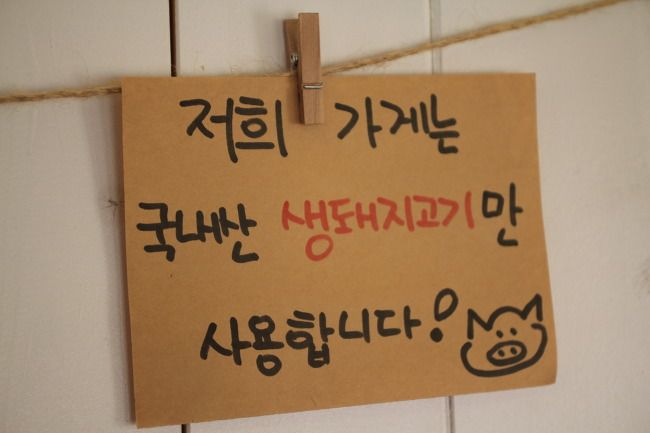 저희 가게는
국내산 생돼지고기만
사용합니다!